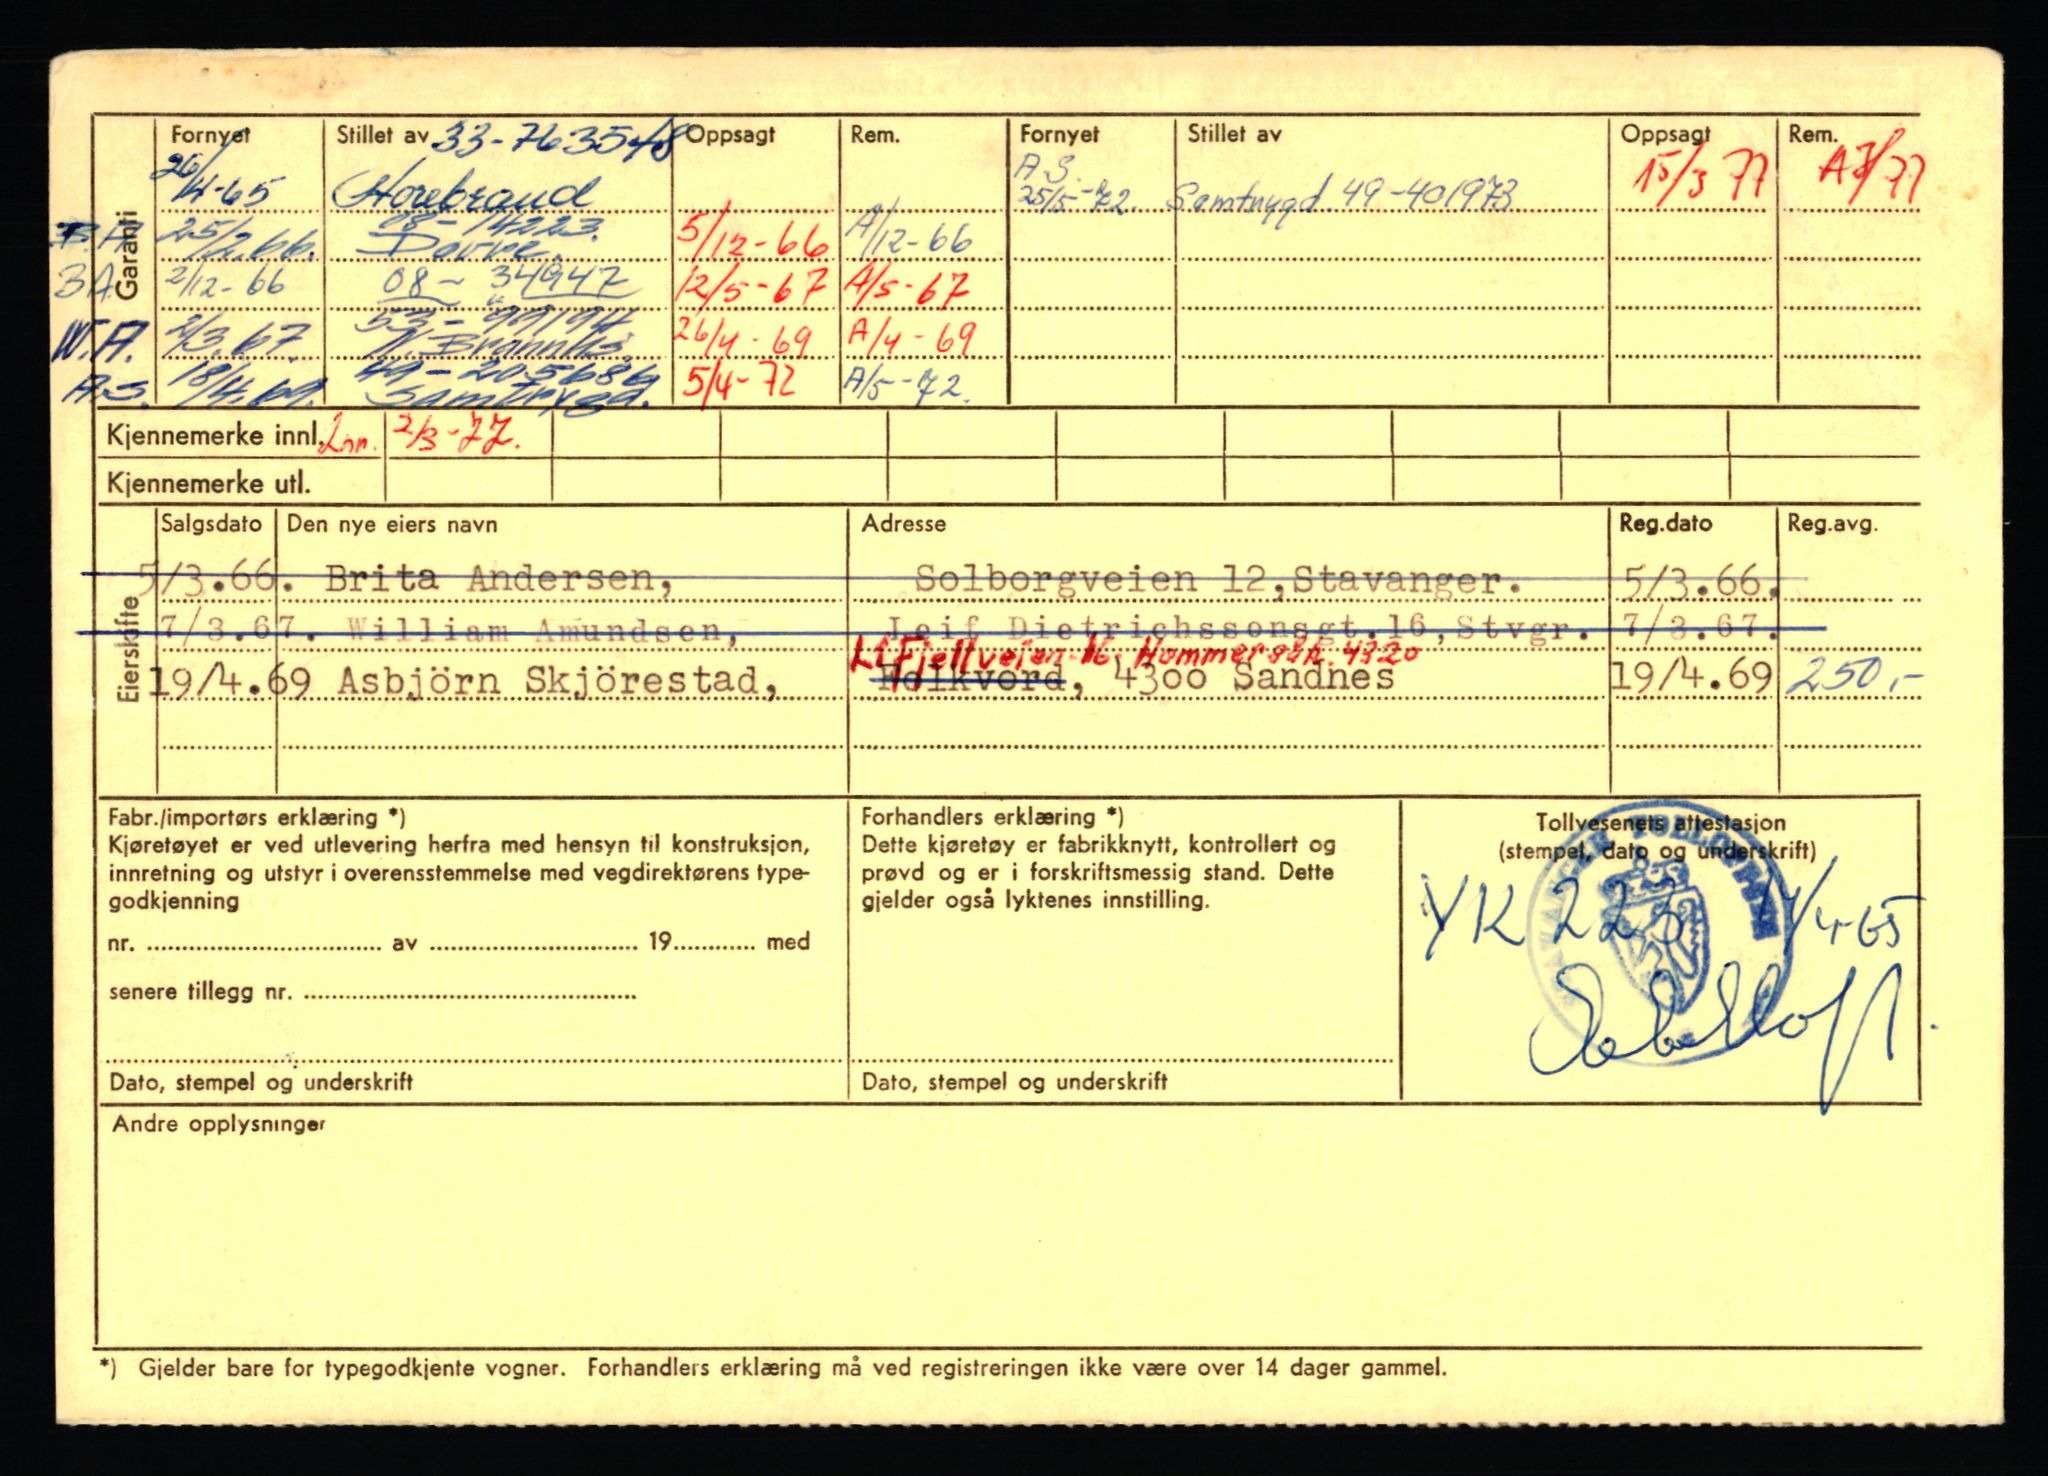 Garanti
Fornyet Stillet av 33-763548 Oppsagt Rem. Fornyet Stillet av Oppsagt Rem.
26/4-65 Storebrand A.S. 25/5-72. Samtrygd 49-401973 15/3 77 A3/77
25/2.66. 08-14223. Dovre. 5/12-66 A/12-66
B A 2/12-66 08-34947 12/5-67 A/5-67
W.A. 2/3.67. 53-99194. N. Brannks. 26/4-69 A/4-69
A.S. 18/4.69. 49-205686 Samtrygd. 5/4-72 A/5-72.
Kjennemerke innl. Inn. 2/3-77.
Kjennemerke utl.
Eierskifte
Salgsdato Den nye eiers navn Adresse Reg.dato Reg.avg.
5/3.66. Brita Andersen, Solborgveien 12, Stavanger. 5/3.66.
7/3.67. William Amundsen, Leif Dietrichssonsgt.16, Stvgr. 7/3.67.
Li Fjellveien 16. Hommersåk. 4320
19/4.69 Asbjörn Skjörestad, Folkvord, 4300 Sandnes 19/4.69 250,-
Fabr./importørs erklæring *)
Kjøretøyet er ved utlevering herfra med hensyn til konstruksjon,
innretning og utstyr i overensstemmelse med vegdirektørens type-
godkjenning
nr. av 19 med
senere tillegg nr.
Dato, stempel og underskrift
Forhandlers erklæring *)
Dette kjøretøy er fabrikknytt, kontrollert og
prøvd og er i forskriftsmessig stand. Dette
gjelder også lyktenes innstilling.
Dato, stempel og underskrift
Tollvesenets attestasjon
(stempel, dato og underskrift)
YK 223 /4-65
Andre opplysninger
*) Gjelder bare for typegodkjente vogner. Forhandlers erklæring må ved registreringen ikke være over 14 dager gammel.